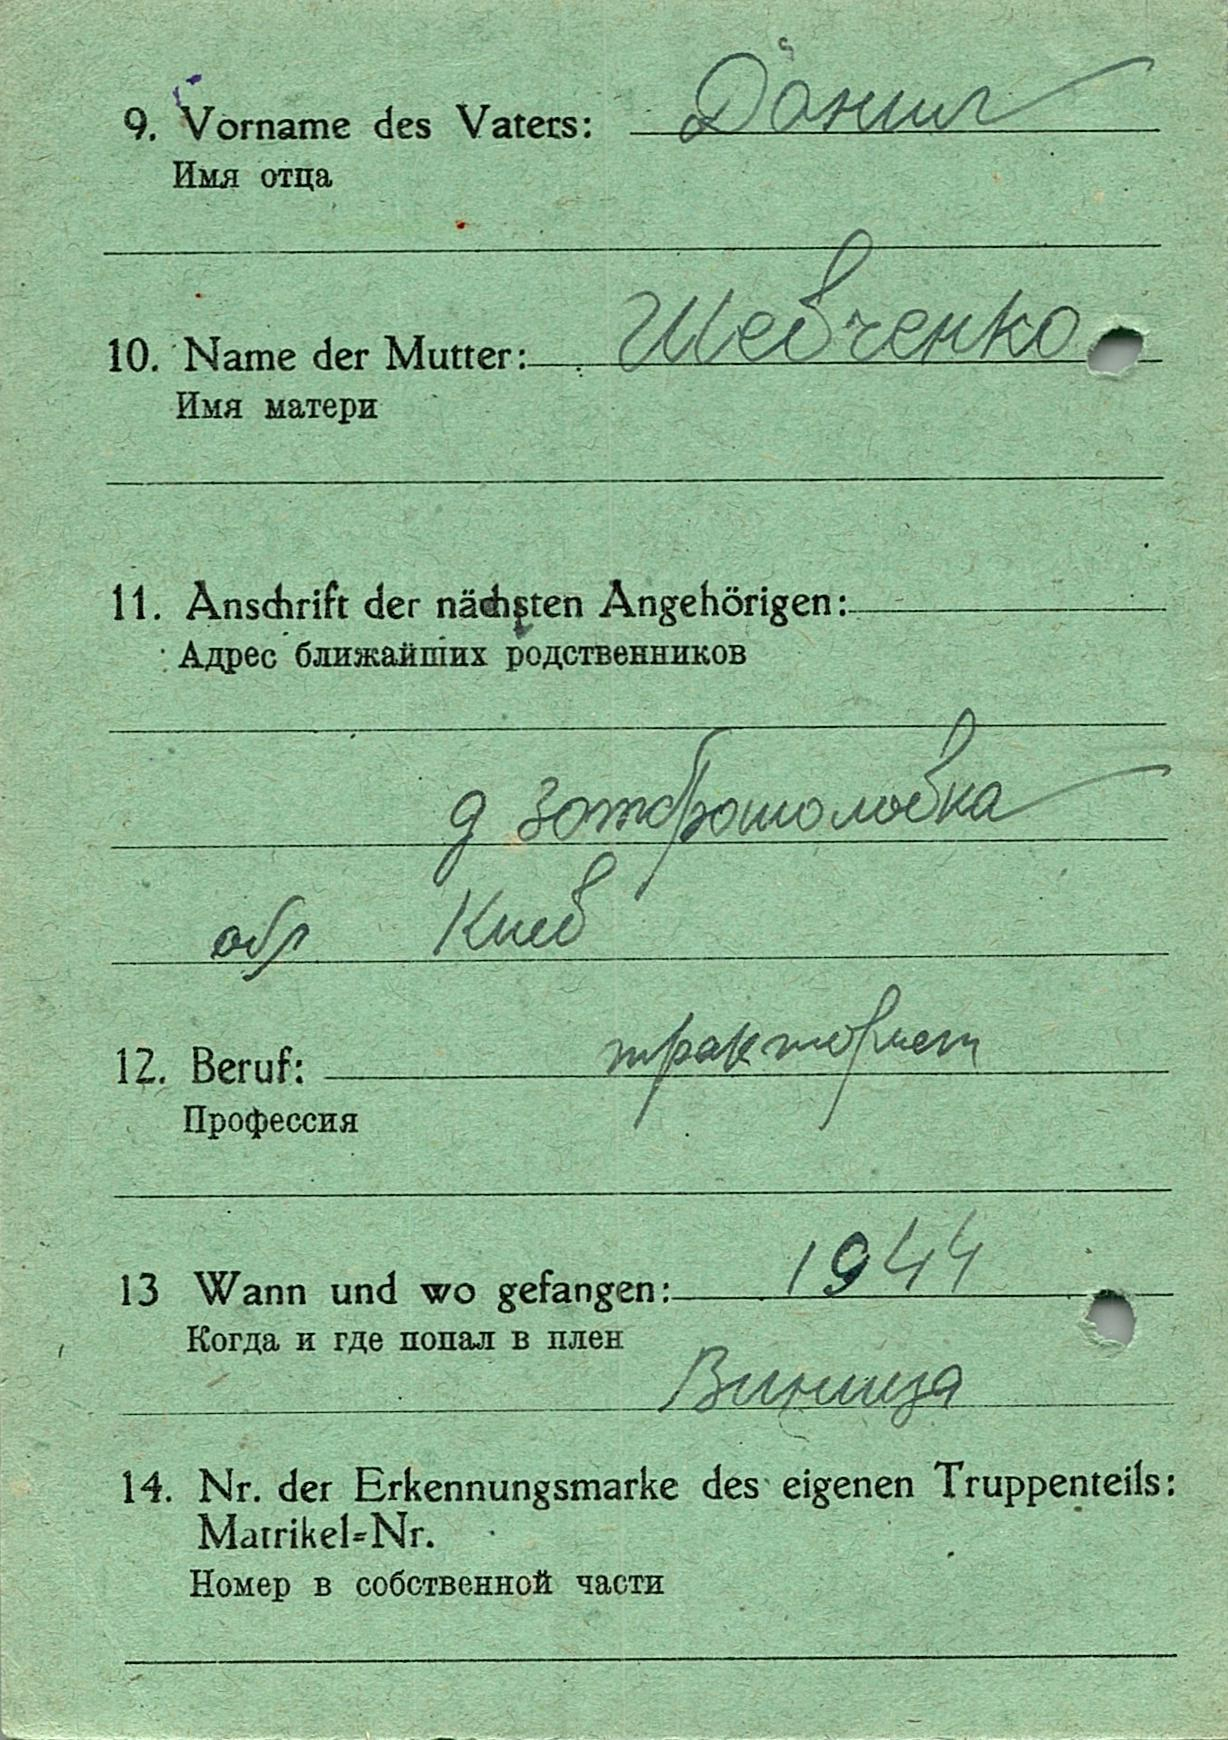 9. Vorname des Vaters: Данил
Имя отца
10. Name der Mutter: Шевченко
Имя матери
11. Anschrift der nächsten Angehörigen:
Адрес ближайших родственников
д
обл Киев
12. Beruf: тракторист
Профессия
13 Wann und wo gefangen: 1944
Когда и где попал в плен
Виница
14. Nr. der Erkennungsmarke des eigenen Truppenteils:
Matrikel=Nr.
Номер в собственной части